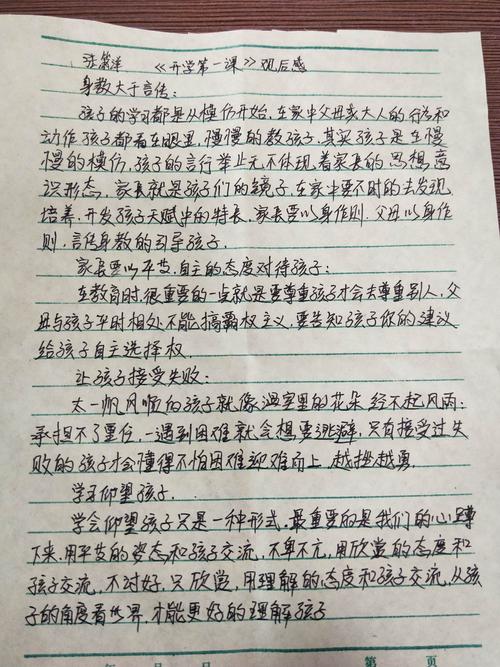 《开学第一课》观后感
身教大于言传:
孩子的学习都是从模仿开始,在家中父母亲大人的行为和
动作孩子都看在眼里,慢慢的教孩子,其实孩子是在慢
慢的模仿,孩子的言行举止无不体现着家长的思想,意
识形态,家长就是孩子们的镜子,在家中要不时的去发现
培养,开发孩子天赋中的特长,家长要以身作则,父母以身作
则,言传身教的引导孩子,
家长要以平等,自主的态度对待孩子:
在教育时,很重要的一点就是要尊重孩子才会去尊重别人,父
母与孩子平时相处不能搞霸权主义,要告知孩子你的建议
给孩子自主选择权.
让孩子接受失败:
太一帆风顺的孩子就像温室里的花朵经不起风雨;
承担不了重任,一遇到困难就会想要逃避,只有接受过失
败的孩子才会懂得不怕困难迎难而上,越挫越勇
学习仰望孩子.
学会仰望孩子只是一种形式,最重要的是我们的心蹲
下来,用平等的姿态和孩子交流,不卑不亢,用欣赏的态度和
孩子交流,不讨好,只欣赏,用理解的态度和孩子交流,从孩
子的角度看世界,才能更好的理解孩子
年 月 日 第 页